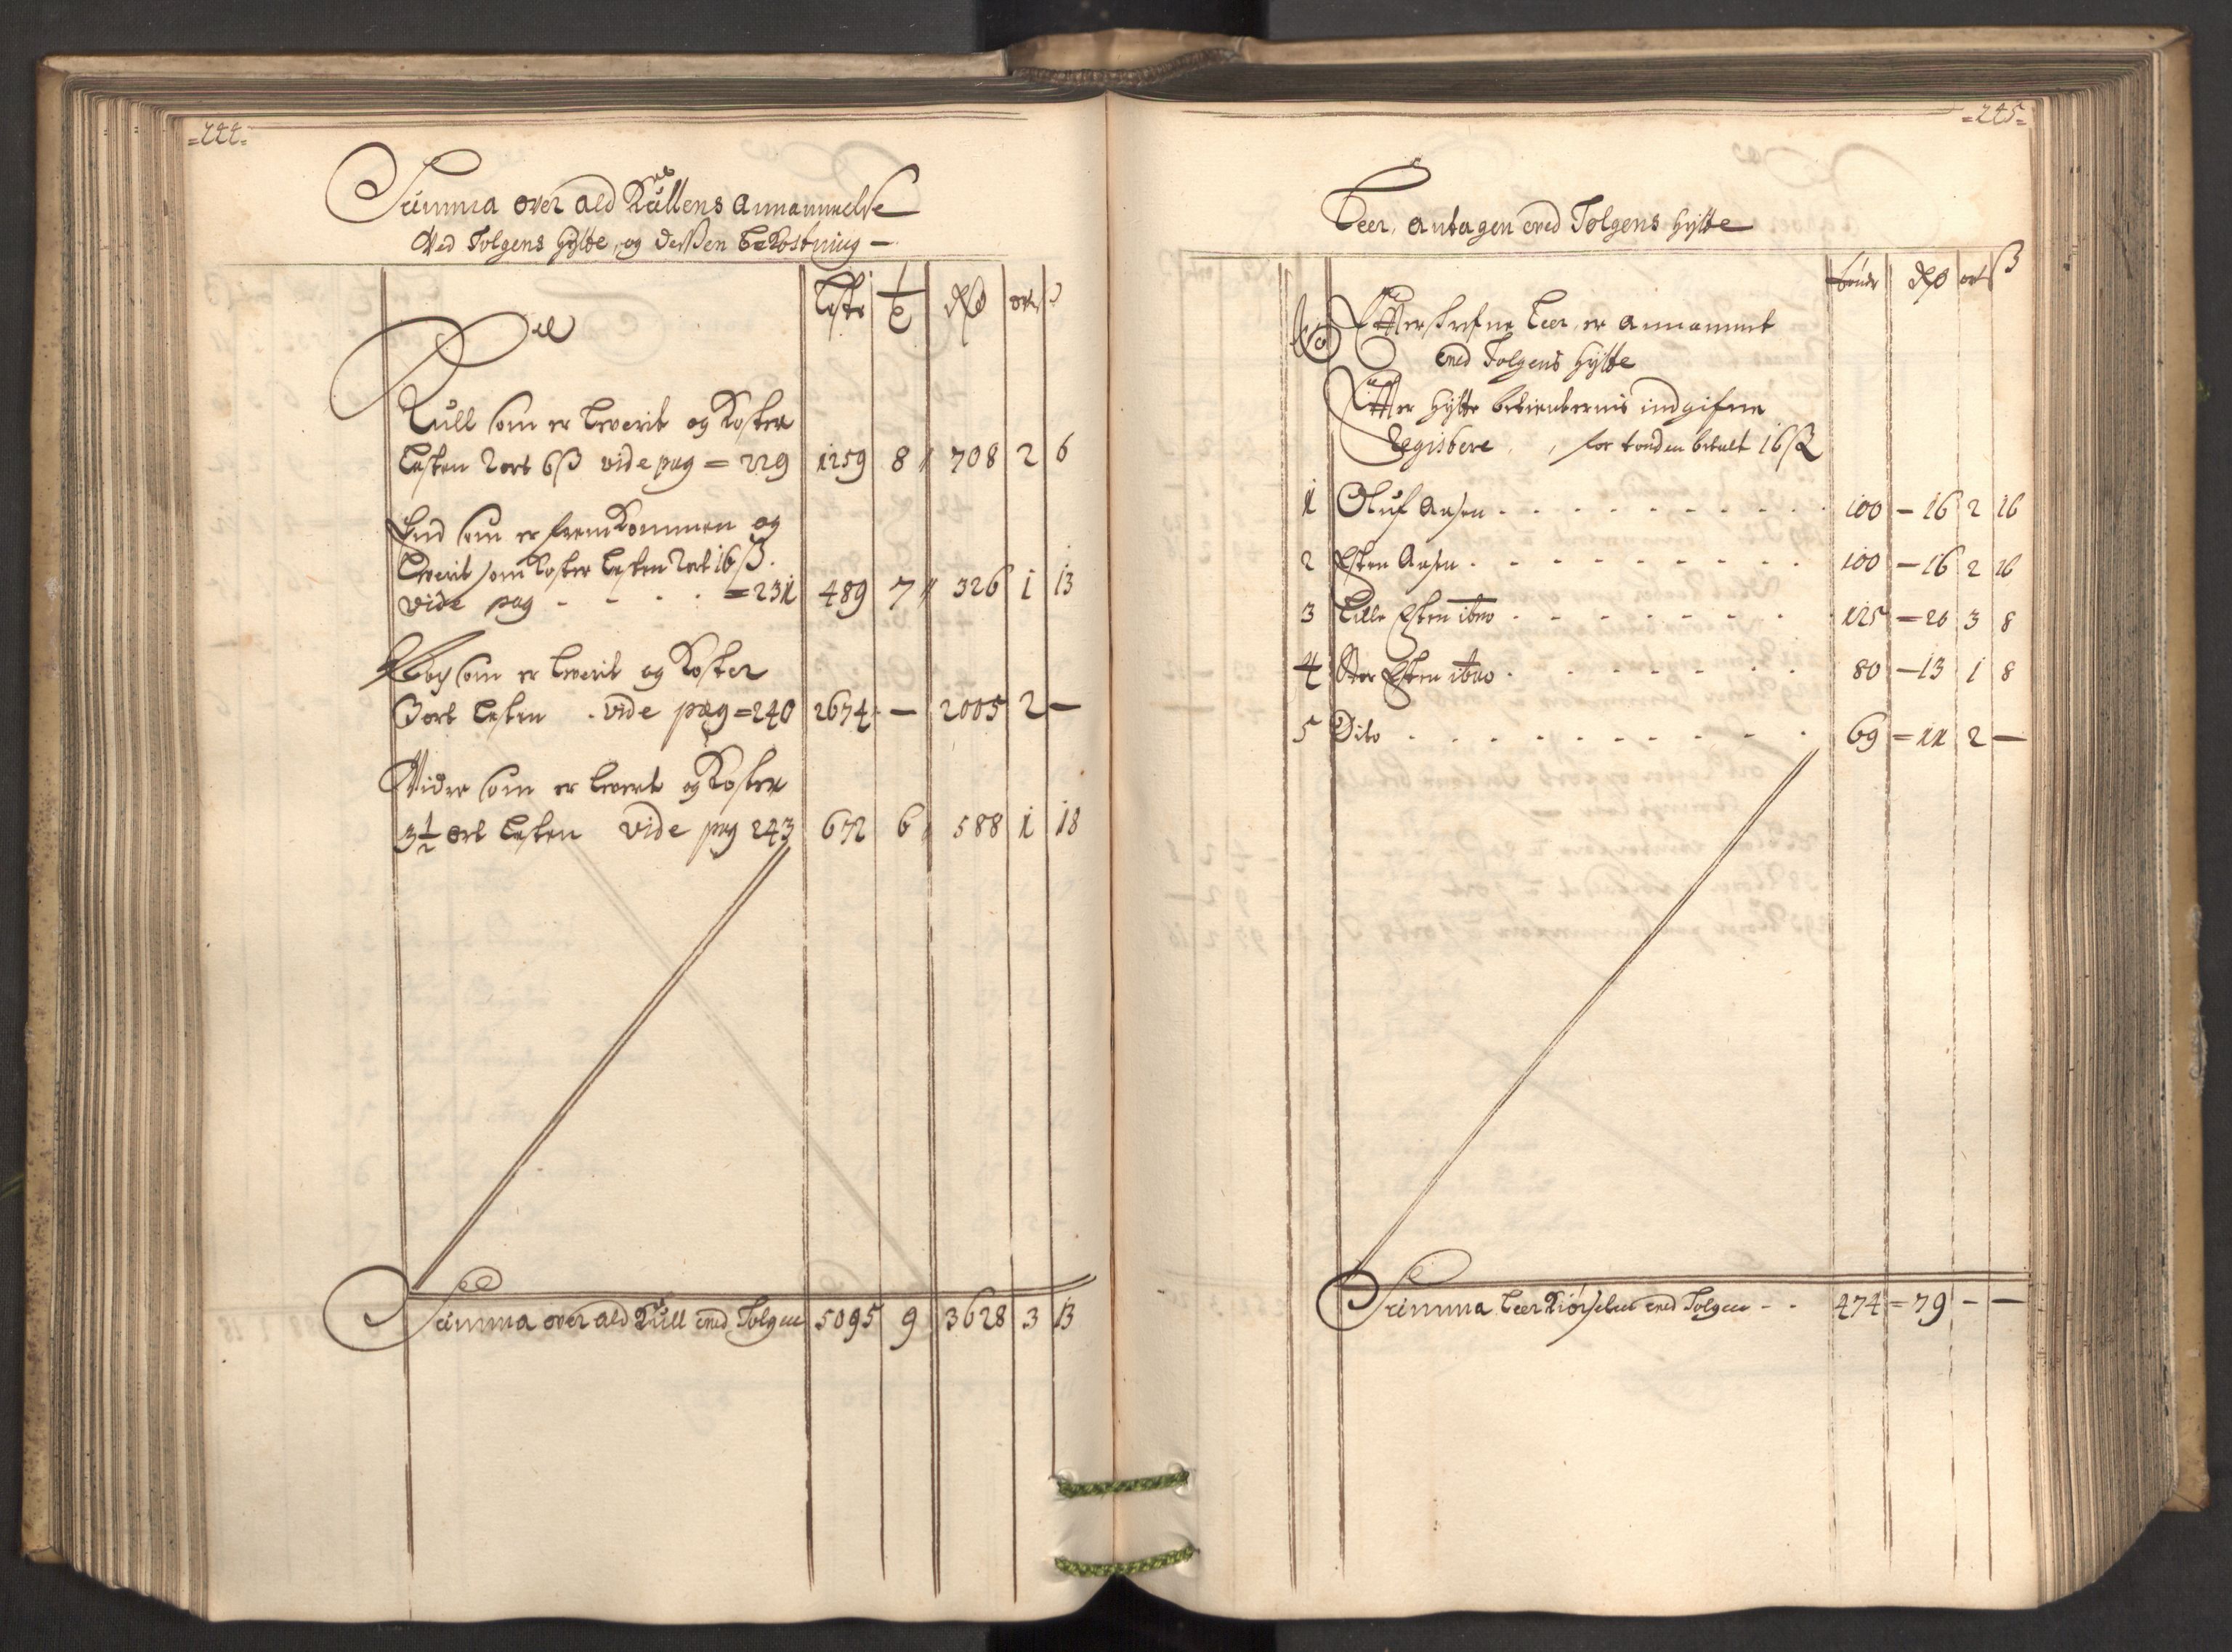 =244=
Summa over ald Kullens Annammelse
Ved Tolgens Hÿtte, og desßen Bekostning —
Lester 1/2 Rdr ort ß
Kull som er Leverit og Koster
Lesten 2 ort 6 ß vide pag = 229 1259 8 708 2 6
End som er fremkommen og
Leverit som koster Lesten 2 ort 16 ß.
vide pag - - - = 231 489 7 326 1 13
Noch som er leverit og Koster
3 ort Lesten . vide pag = 240 2674 — 2005 2 —
Vider som er leverit og Koster
3 1/2 ort Lesten vide pag 243 672 6 588 1 18
Summa over ald Kull ved Tolgen 5095 9 3628 3 13
=245=
Leer, antagen ved Tolgens Hÿtte
tønder Rdr ort ß
No Efterskrefne Leer, er Annammit
ved Tolgens Hÿtte
Efter Hÿtte betienternis indgifne
Registere, for tønden betalt 16 ß
1 Oluf Aasen - - - 100 — 16 2 16
2 Esten Aasen - - - 100 — 16 2 16
3 Lille Esten ibno - - - 125 = 20 3 8
4 Stor Esten ibno - - - 80 — 13 1 8
5 Dito - - - 69 = 11 2 —
Summa Leer Kiørselen ved Tolgen - - 474 = 79 - —